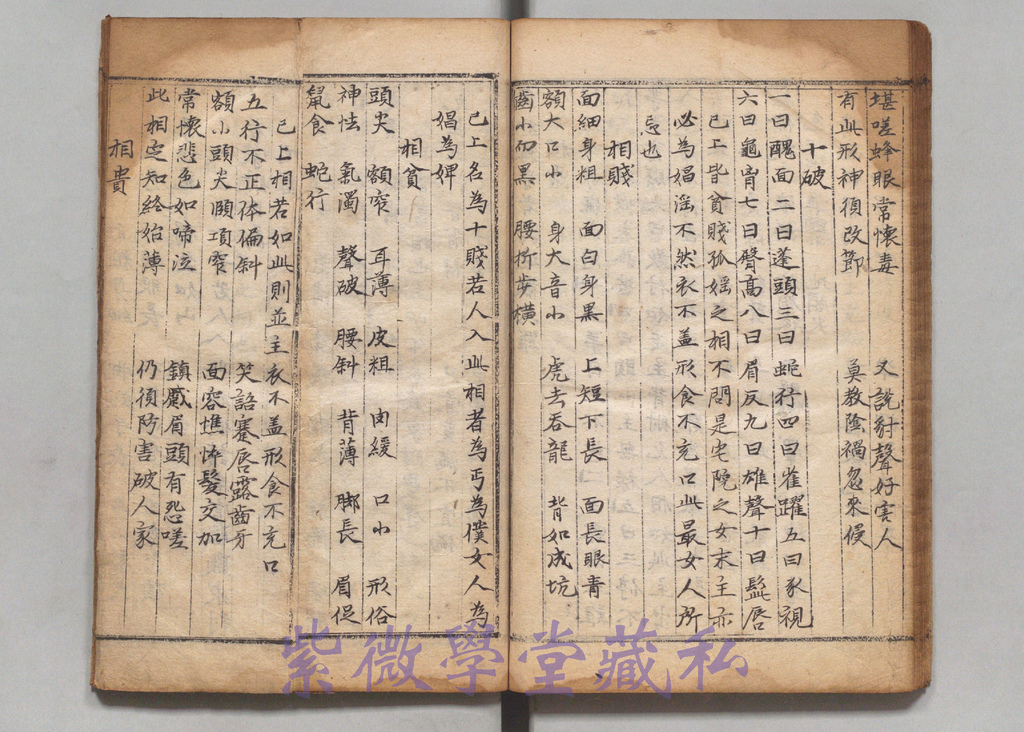 堪嗟蜂眼常懷毒　又說豺聲好害人
有此形神須改節　莫教陰禍忽來侵
十破
一曰醜面二曰蓬頭三曰蛇行四曰雀躍五曰豕視
六曰龜胷七曰臀高八曰眉反九曰雄聲十曰髭唇
已上皆貧賤孤婬之相不問是宅院之女末主亦
必為娼淫不然衣不盖形食不充口此最女人所
忌也
相賤
面細身粗　面白身黒　上短下長　面長眼青
額大口小　身大音小　虎去吞龍　背如成坑
齒小而黒　腰折步橫
已上名為十賤若人入此相者為丐為僕女人為
娼為婢
相貧
頭尖　額窄　耳薄　皮粗　肉緩　口小　形俗
神怯　氣濁　聲破　腰斜　背薄　脚長　眉促
鼠食　蛇行
已上相若如此則並主衣不盖形食不充口
五行不正体偏斜　笑語蹇唇露齒牙
額小頭尖頥項窄　面容憔悴髮交加
常懷悲色如啼泣　鎮蹙眉頭有怨嗟
此相定知終始薄　仍須防害破人家
相貴
紫微學堂藏私